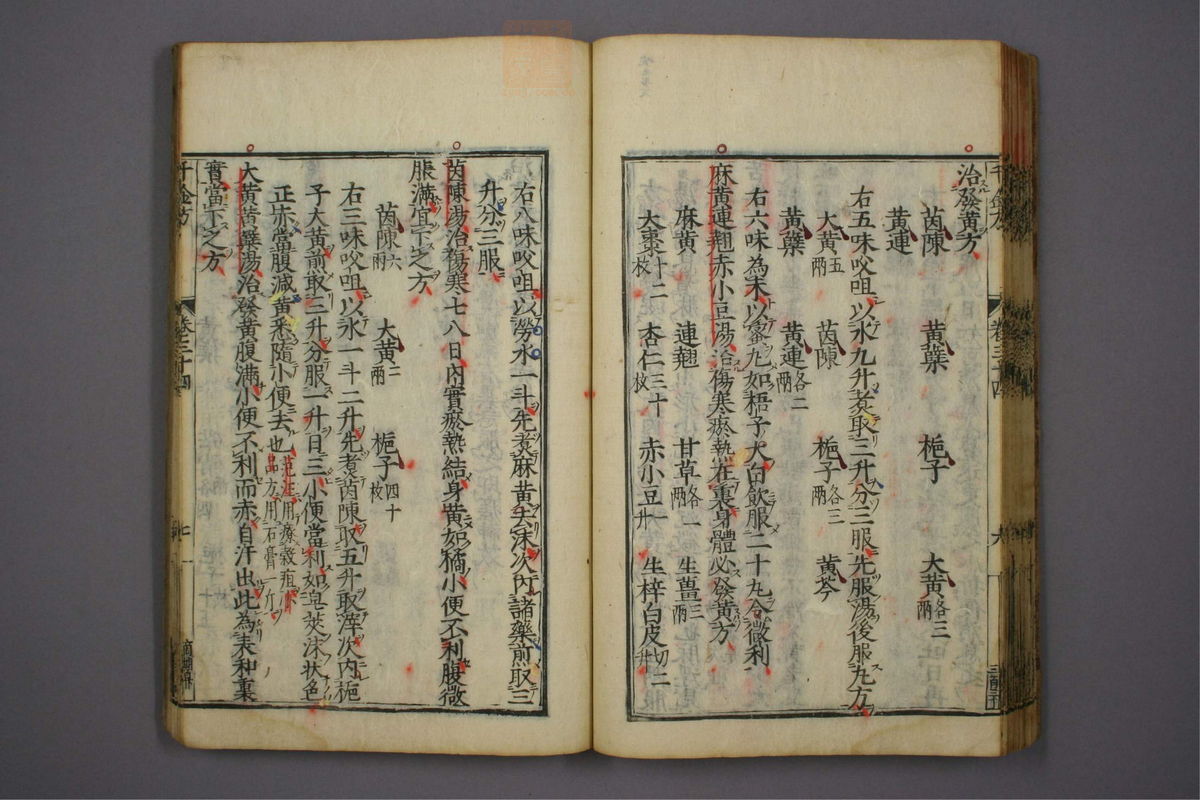 治發黃方
茵陳 黃蘗 梔子 大黃各三兩
黃連
右五味㕮咀以水九升煮取三升分三服先服湯後服丸方
大黃五兩 茵陳 梔子各三兩 黃芩
黃蘗 黃連各二兩
右六味為末以蜜丸如梧子大白飲服二十丸令微利
麻黃連翹赤小豆湯治傷寒瘀熱在裏身體必發黃方
麻黃 連翹 甘草各一兩 生薑三兩
大棗十二枚 杏仁三十枚 赤小豆一升 生梓白皮切二升
右八味㕮咀以勞水一斗先煮麻黃去沫次內諸藥煎取三
升分三服
茵陳湯治傷寒七八日內實瘀熱結身黃如橘小便不利腹微
脹滿宜下之方
茵陳六兩 大黃二兩 梔子四十枚
右三味㕮咀以水一斗二升先煮茵陳取五升取滓次內梔
子大黃煎取三升分服一升日三小便當利如皂莢沫狀色
正赤當腹減黃悉隨小便去也范汪用療穀疸小品方用石膏一斤
大黃黃蘗湯治發黃腹滿小便不利而赤自汗出此為表和裏
實當下之方
千金方 卷三十四 七